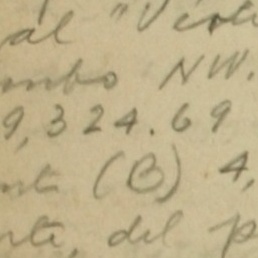 al "Viol
mbo NW.
9,324.69
nte (B) 4,
rte, del p